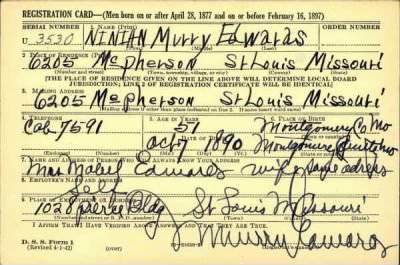 REGISTRATION CARD—(Men born on or after April 28, 1877 and on or before February 16, 1897)
SERIAL NUMBER 1. NAME (Print) ORDER NUMBER
U 3530 NINIAN Murry Edwards
(First) (Middle) (Last)
2. PLACE OF RESIDENCE (Print)
6205 McPherson St Louis Missouri
(Number and street) (Town, township, village, or city) (County) (State)
[THE PLACE OF RESIDENCE GIVEN ON THE LINE ABOVE WILL DETERMINE LOCAL BOARD
JURISDICTION; LINE 2 OF REGISTRATION CERTIFICATE WILL BE IDENTICAL]
3. MAILING ADDRESS
6205 McPherson St Louis Missouri
4. TELEPHONE 5. AGE IN YEARS 6. PLACE OF BIRTH
Cab 7591 51 Montgomery Co Mo
DATE OF BIRTH
Oct 1890 Montgomery Mo
7. NAME AND ADDRESS OF PERSON WHO WILL ALWAYS KNOW YOUR ADDRESS
Mrs Mabel Edwards wife same address
8. EMPLOYER'S NAME AND ADDRESS
Self
9. PLACE OF EMPLOYMENT OR BUSINESS
1028 Pierce Bldg St Louis Missouri
(Number and street or R. F. D. number) (Town) (County) (State)
I AFFIRM THAT I HAVE VERIFIED ABOVE ANSWERS AND THAT THEY ARE TRUE.
D. S. S. Form 1
(Revised 4-1-42) (over)
Murry Edwards